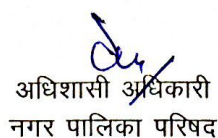 अधिशासी अधिकारी
नगर पालिका परिषद